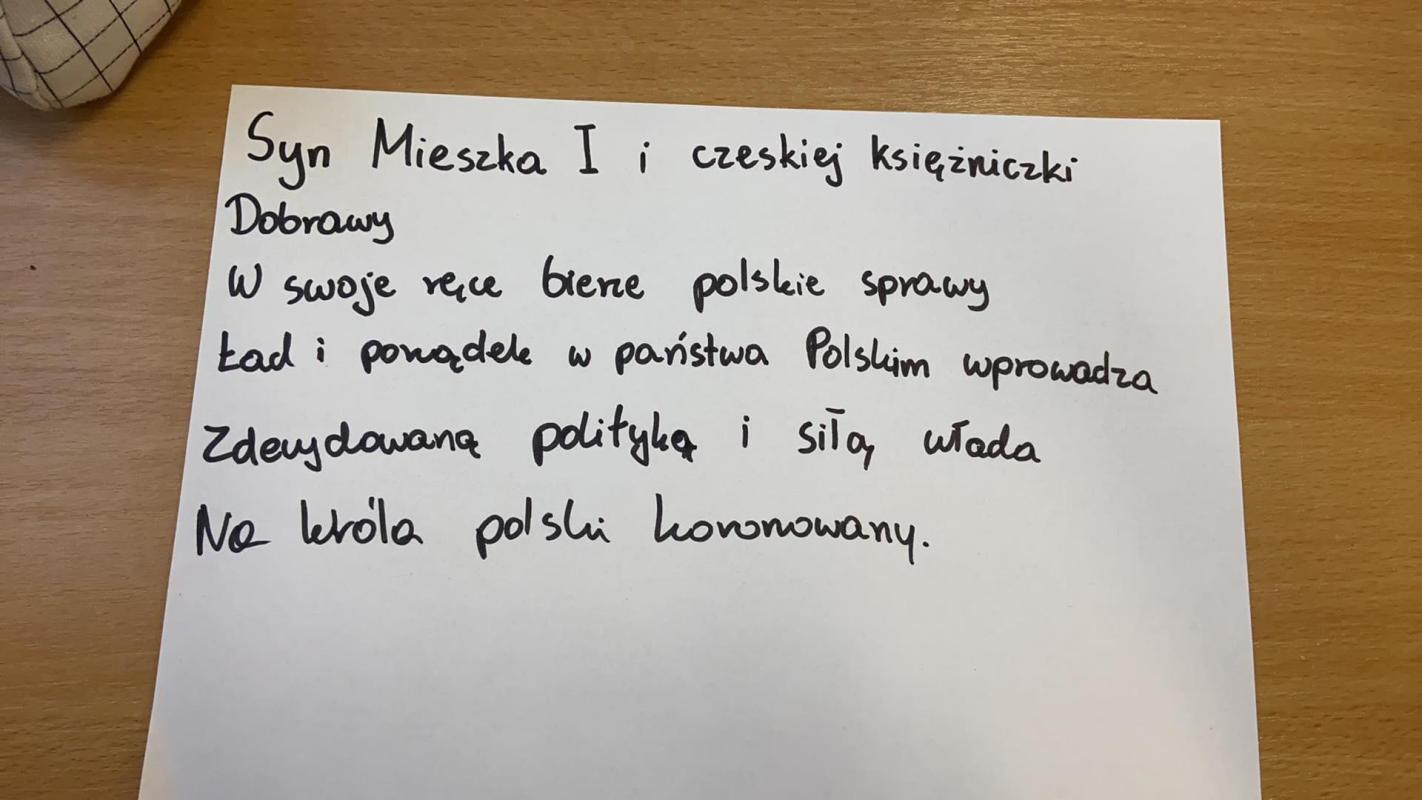 Syn Mieszka I i czeskiej księżniczki
Dobrawy
W swoje ręce bierze polskie sprawy
Ład i porządek w państwa Polskim wprowadza
Zdecydowaną polityką i siłą włada
Na króla polski koronowany.